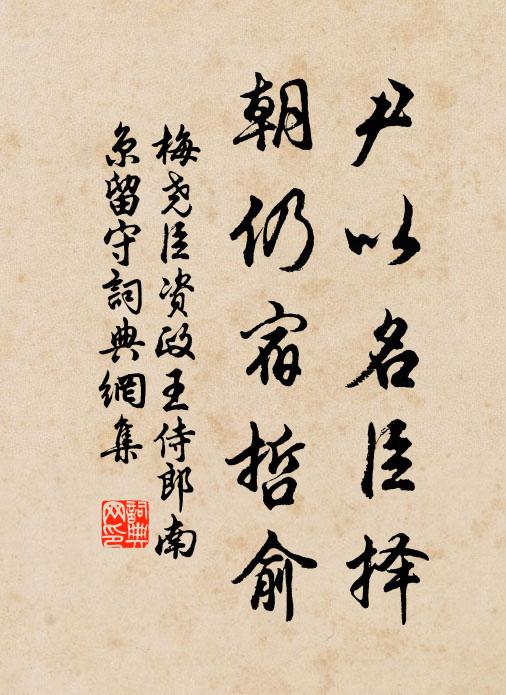 尹以名臣择
朝仍宿哲俞
梅尧臣资政王侍郎南
京留守詞典網集
詞典网印